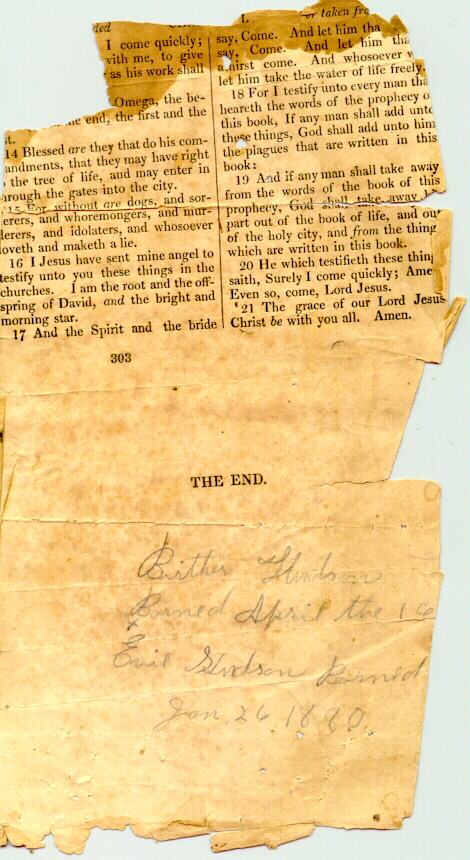 I come quickly;
with me, to give
as his work shall
Omega, the be-
the end, the first and
st.
14 Blessed are they that do his com-
andments, that they may have right
the tree of life, and may enter in
hrough the gates into the city.
15 For without are dogs, and sor-
erers, and whoremongers, and mur-
derers, and idolaters, and whosoever
loveth and maketh a lie.
16 I Jesus have sent mine angel to
testify unto you these things in the
churches. I am the root and the off-
spring of David, and the bright and
morning star.
17 And the Spirit and the bride
or taken fro
say, Come. And let him tha
say, Come. And let him tha
athirst come. And whosoever
let him take the water of life freely.
18 For I testify unto every man tha
heareth the words of the prophecy o
this book, If any man shall add unto
these things, God shall add unto him
the plagues that are written in this
book:
19 And if any man shall take away
from the words of the book of this
prophecy, God shall take away
part out of the book of life, and out
of the holy city, and from the thing
which are written in this book.
20 He which testifieth these thing
saith, Surely I come quickly; Ame
Even so, come, Lord Jesus.
21 The grace of our Lord Jesus
Christ be with you all. Amen.
303
THE END.
Birther Hudson
Borned April the 16
Hudson Borned
Jan. 26. 1880.